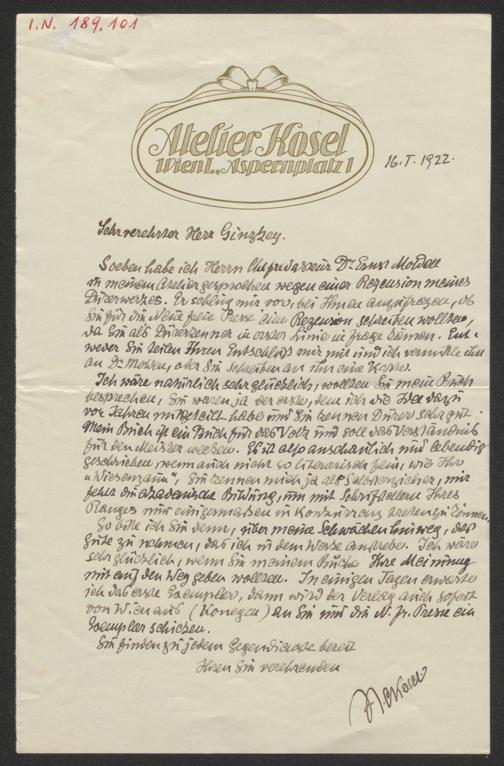 I.N. 189.101
Atelier Kosel
Wien I., Aspernplatz 1
16. I. 1922.
Sehr verehrter Herr Ginzkey.
Soeben habe ich Herrn Chefredakteur Dr. Ernst
in meinem Atelier gesprochen wegen einer Rezension meines
Dürerwerkes. Er schlug mir vor, bei Ihnen anzufragen, ob
Sie für die Neue freie Presse eine Rezension schreiben wollten,
da Sie als Dürerkenner in erster Linie in Frage kämen. Ent-
weder Sie teilen Ihren Entschluß nur mir mit und ich vermittle ihn
an Dr. oder Sie schreiben an ihn eine Karte.
Ich wäre natürlich sehr glücklich, wollten Sie mein Buch
besprechen, Sie waren ja der erste, dem ich die Idee dazu
vor Jahren mitgeteilt habe und Sie kennen Dürer sehr gut.
Mein Buch ist ein Buch für das Volk und soll das Verständnis
für den Meister wecken. Es ist also anschaulich und lebendig
geschrieben, wenn auch nicht so literarisch fein, wie Ihr
"Wiesenzaun", Sie kennen mich ja als Selbsterzieher, mir
fehlt die akademische Bildung, um mit Schriftstellern Ihres
Ranges nur einigermaßen in Konkurrenz treten zu können.
So bitte ich Sie denn, über meine Schwächen hinweg, das
Gute zu nehmen, das ich in dem Werke anstrebe. Ich wäre
sehr glücklich, wenn Sie meinem Buche Ihre Meinung
mit auf den Weg geben wollten. In einigen Tagen erwarte
ich das erste Exemplar, dann wird der Verlag auch sofort
von Wien aus (Konegen) an Sie und die N. fr. Presse ein
Exemplar schicken.
Sie finden zu jedem Gegendienste bereit
Ihren Sie verehrenden
Kosel